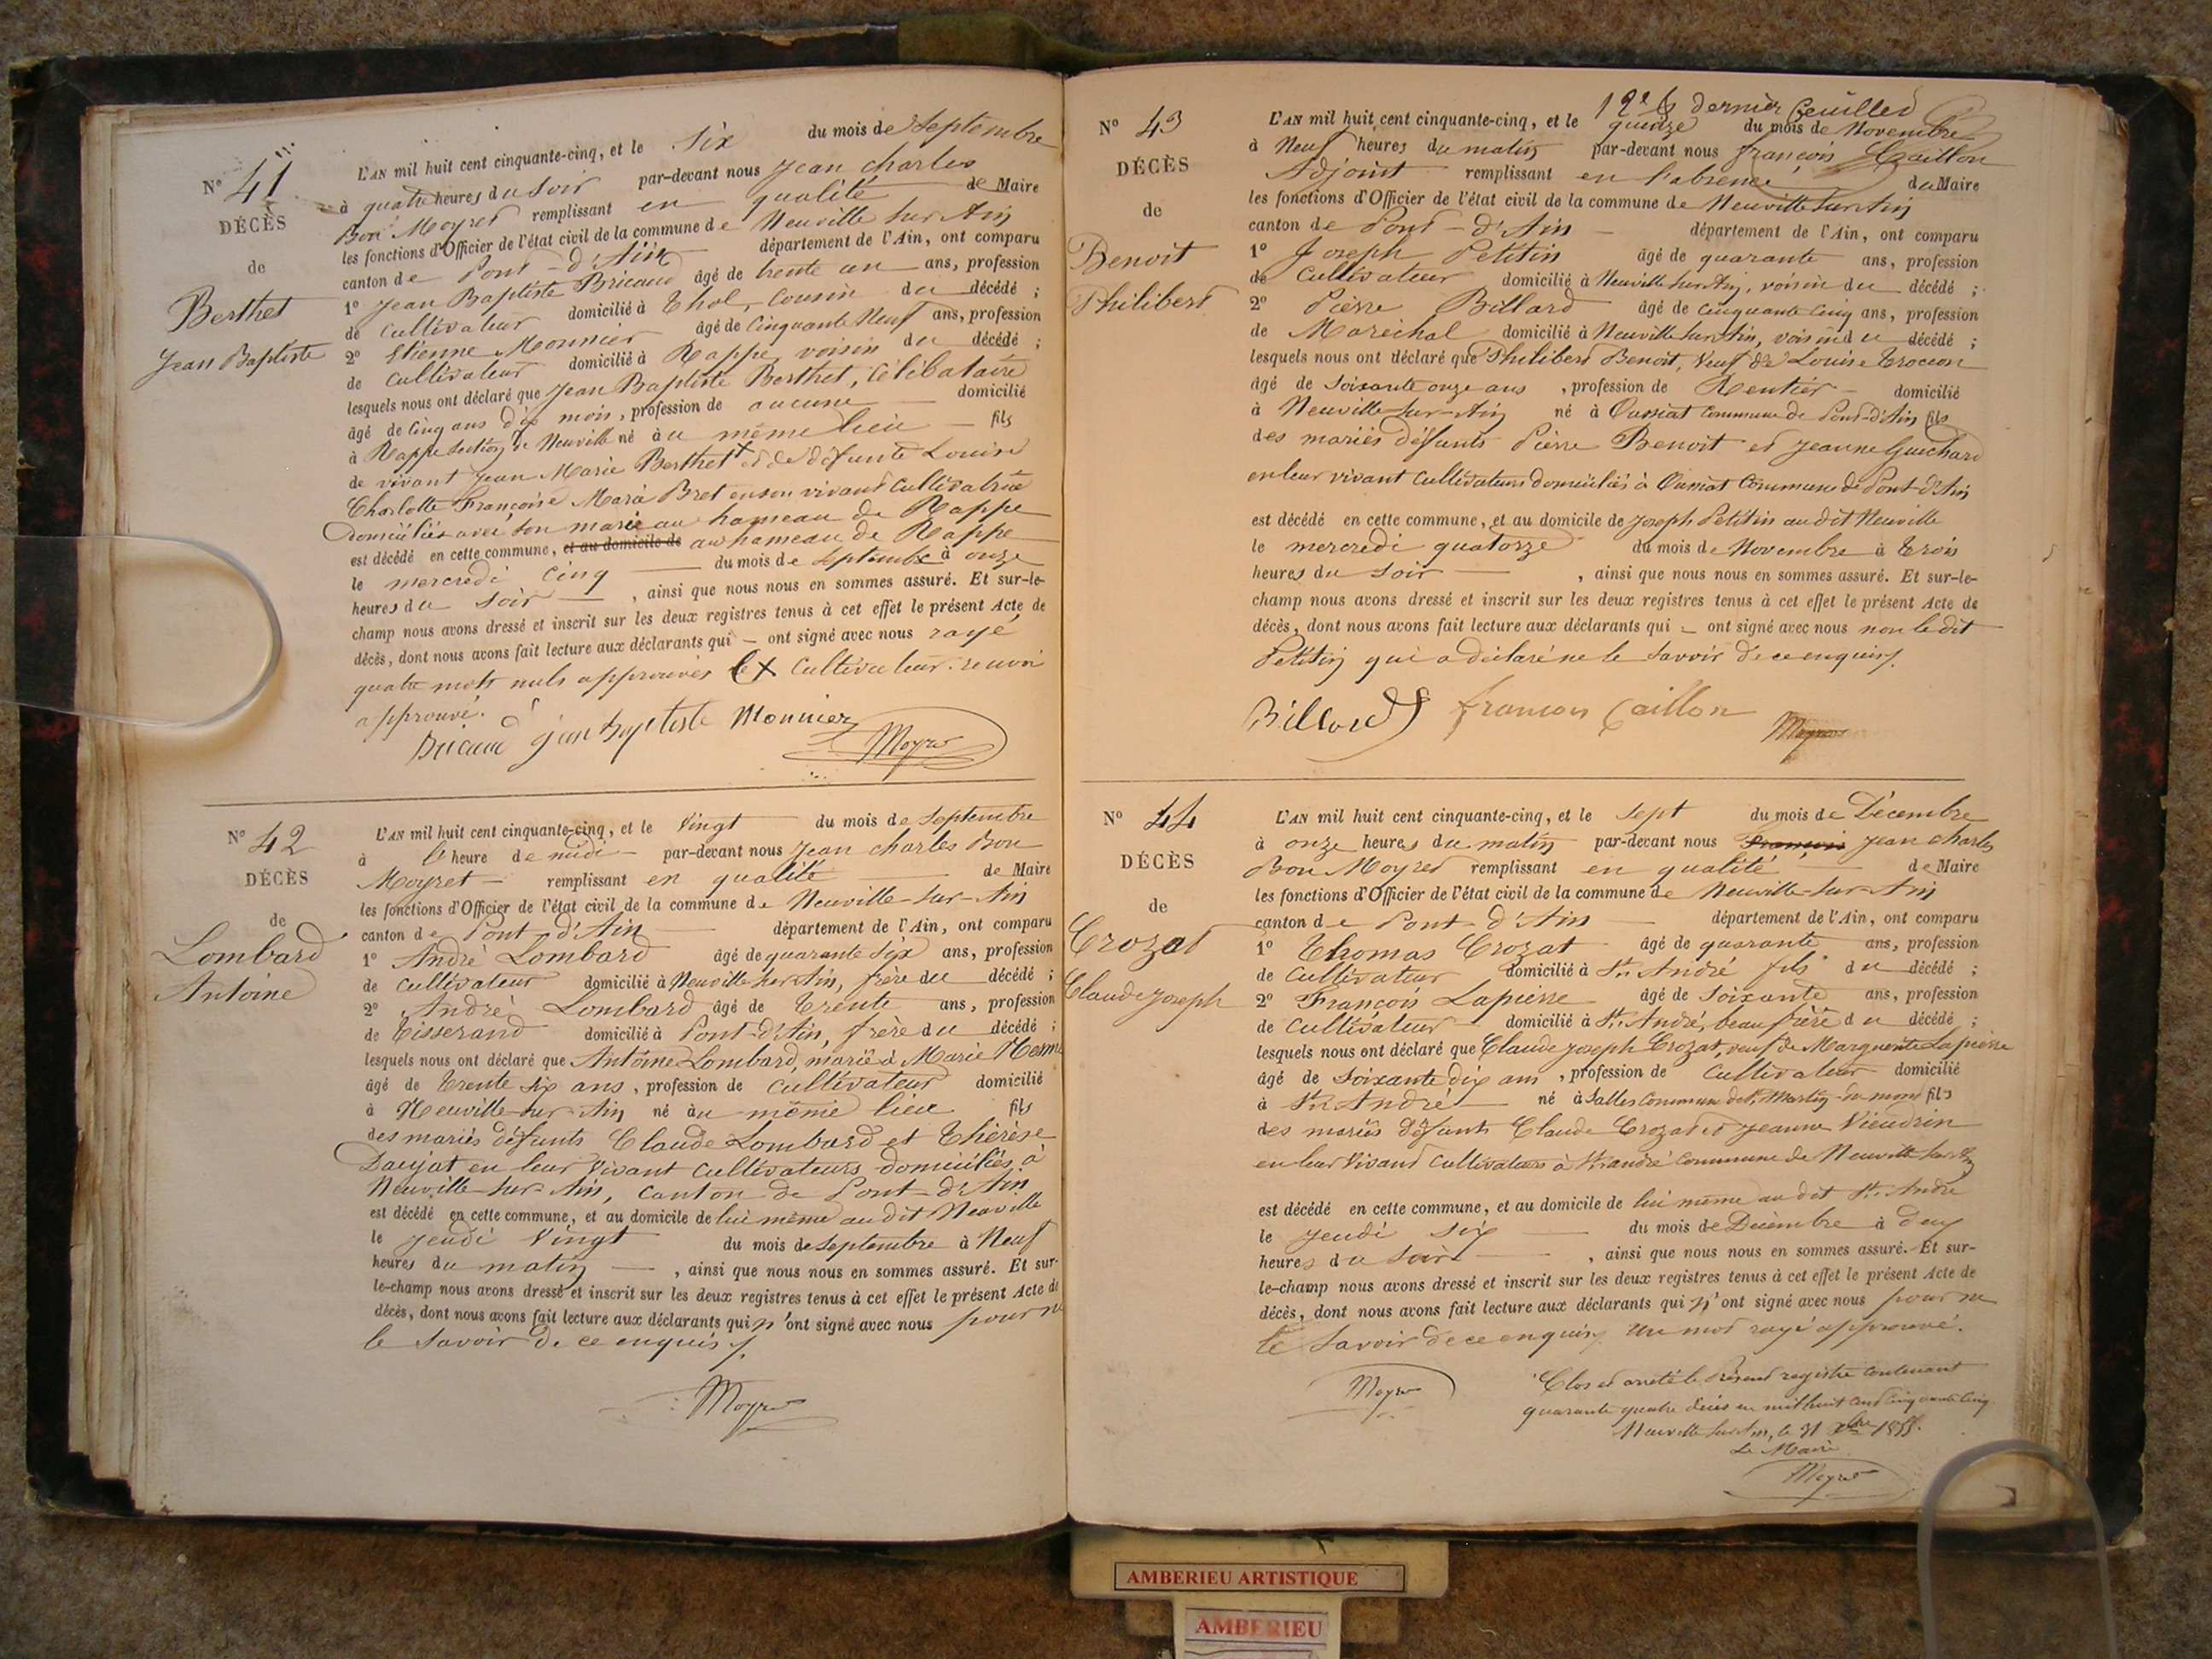 N° 41
DÉCÈS
de
Berthet
Jean Baptiste
L'AN mil huit cent cinquante-cinq, et le six du mois de Septembre
à quatre heures du soir par-devant nous Jean charles
Bon Moyret remplissant en qualité de Maire
les fonctions d'Officier de l'état civil de la commune de Neuville sur Ain
canton de Pont-d'Ain département de l'Ain, ont comparu
1° Jean Baptiste Bricaud âgé de trente un ans, profession
de cultivateur domicilié à Thol, cousin du décédé ;
2° Etienne Monnier âgé de Cinquante Neuf ans, profession
de cultivateur domicilié à Rappe, voisin du décédé ;
lesquels nous ont déclaré que Jean Baptiste Berthet, célibataire
âgé de Cinq ans dix mois, profession de aucune domicilié
à Rappe Section de Neuville né au même lieu fils
de vivant Jean Marie Berthet + et de défunte Louise
Charlotte Françoise Marie Bret en son vivant Cultivatrice
domiciliés avec son marie au hameau de Rappe
est décédé en cette commune, et au domicile de au hameau de Rappe
le mercredi Cinq du mois de septembre à onze
heures du soir , ainsi que nous nous en sommes assuré. Et sur-le-
champ nous avons dressé et inscrit sur les deux registres tenus à cet effet le présent Acte de
décès, dont nous avons fait lecture aux déclarants qui ont signé avec nous rayé
quatre mots nuls approuvés + Cultivateur. renvoi
approuvé.
Bricaud jean Baptiste Monnier
Moyret
N° 42
DÉCÈS
de
Lombard
Antoine
L'AN mil huit cent cinquante-cinq, et le Vingt du mois de Septembre
à l'heure de midi par-devant nous Jean charles Bon
Moyret remplissant en qualité de Maire
les fonctions d'Officier de l'état civil de la commune de Neuville-sur-Ain
canton de Pont-d'Ain département de l'Ain, ont comparu
1° André Lombard âgé de quarante six ans, profession
de cultivateur domicilié à Neuville sur Ain, frère du décédé ;
2° André Lombard âgé de Trente ans, profession
de Tisserand domicilié à Pont-d'Ain, frère du décédé ;
lesquels nous ont déclaré que Antoine Lombard, marié à Marie
âgé de Trente six ans, profession de cultivateur domicilié
à Neuville-sur-Ain né au même lieu fils
des mariés défunts Claude Lombard et Thérèse
Daujat en leur vivant Cultivateurs domiciliés à
Neuville-sur-Ain, Canton de Pont-d'Ain
est décédé en cette commune, et au domicile de lui même audit Neuville
le jeudi Vingt du mois de Septembre à Neuf
heures du matin , ainsi que nous nous en sommes assuré. Et sur-
le-champ nous avons dressé et inscrit sur les deux registres tenus à cet effet le présent Acte de
décès, dont nous avons fait lecture aux déclarants qui n'ont signé avec nous pour ne
le savoir de ce enquis.
Moyret
dernier feuillet
N° 43
DÉCÈS
de
Benoit
Philibert
L'AN mil huit cent cinquante-cinq, et le quinze du mois de Novembre
à Neuf heures du matin par-devant nous françois Caillon
Adjoint remplissant en l'absence du Maire
les fonctions d'Officier de l'état civil de la commune de Neuville sur Ain
canton de Pont-d'Ain département de l'Ain, ont comparu
1° Joseph Petitin âgé de quarante ans, profession
de Cultivateur domicilié à Neuville sur Ain, voisin du décédé ;
2° Pierre Billard âgé de Cinquante Cinq ans, profession
de Maréchal domicilié à Neuville sur Ain, voisin du décédé ;
lesquels nous ont déclaré que Philibert Benoit, Veuf de Louise Trocon
âgé de Soixante onze ans , profession de Rentier domicilié
à Neuville-sur-Ain né à Oussiat Commune de Pont-d'Ain fils
des mariés défunts Pierre Benoit et Jeanne Guichard
en leur vivant Cultivateurs domiciliés à Oussiat Commune de Pont-d'Ain
est décédé en cette commune, et au domicile de Joseph Petitin au dit Neuville
le mercredi quatorze du mois de Novembre à Trois
heures du soir , ainsi que nous nous en sommes assuré. Et sur-le-
champ nous avons dressé et inscrit sur les deux registres tenus à cet effet le présent Acte de
décès, dont nous avons fait lecture aux déclarants qui ont signé avec nous non le dit
Petitin qui a déclaré ne le savoir de ce enquis.
Billard francois Caillon
N° 44
DÉCÈS
de
Crozat
Claude Joseph
L'AN mil huit cent cinquante-cinq, et le Sept du mois de Décembre
à onze heures du matin par-devant nous François Jean charles
Bon Moyret remplissant en qualité de Maire
les fonctions d'Officier de l'état civil de la commune de Neuville-sur-Ain
canton de Pont-d'Ain département de l'Ain, ont comparu
1° Thomas Crozat âgé de quarante ans, profession
de Cultivateur domicilié à St. André fils du décédé ;
2° François Lapierre âgé de Soixante ans, profession
de Cultivateur domicilié à St. André, beau frère du décédé ;
lesquels nous ont déclaré que Claude Joseph Crozat, veuf de Marguerite Lapierre
âgé de Soixante dix ans , profession de Cultivateur domicilié
à St. André né à Salles Commune de St. Martin du mont fils
des mariés défunts Claude Crozat et Jeanne Vieudrin
en leur vivant Cultivateurs à St. andré Commune de Neuville sur Ain
est décédé en cette commune, et au domicile de lui même au dit St. André
le jeudi six du mois de Décembre à deux
heures du soir , ainsi que nous nous en sommes assuré. Et sur-
le-champ nous avons dressé et inscrit sur les deux registres tenus à cet effet le présent Acte de
décès, dont nous avons fait lecture aux déclarants qui n'ont signé avec nous pour ne
le savoir de ce enquis. Un mot rayé approuvé.
Moyret
Clos et arrêté le Présent registre Contenant
quarante quatre décès en mil huit cent Cinquante Cinq
Neuville sur Ain, le 31 Xbre 1855.
Le Maire
Moyret
AMBERIEU ARTISTIQUE
AMBERIEU